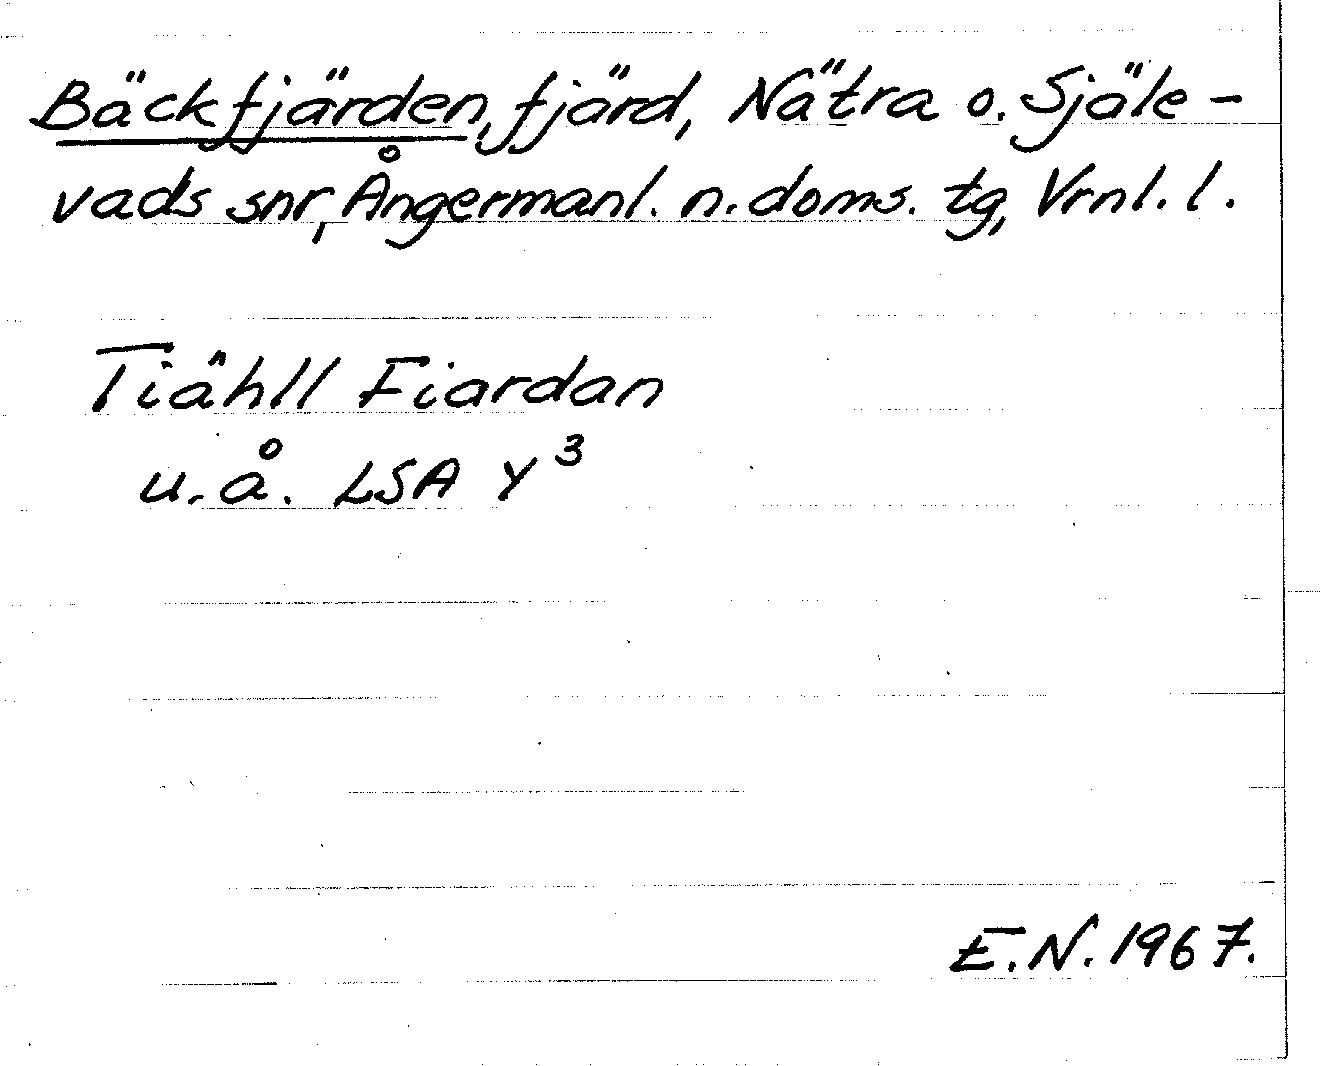 Bäckfjärden, fjärd, Nätra o. Själe-
vads snr, Ångermanl. n. doms. tg, Vrnl. l.
Tiähll Fiardan
u.å. LSA Y³
E.N. 1967.